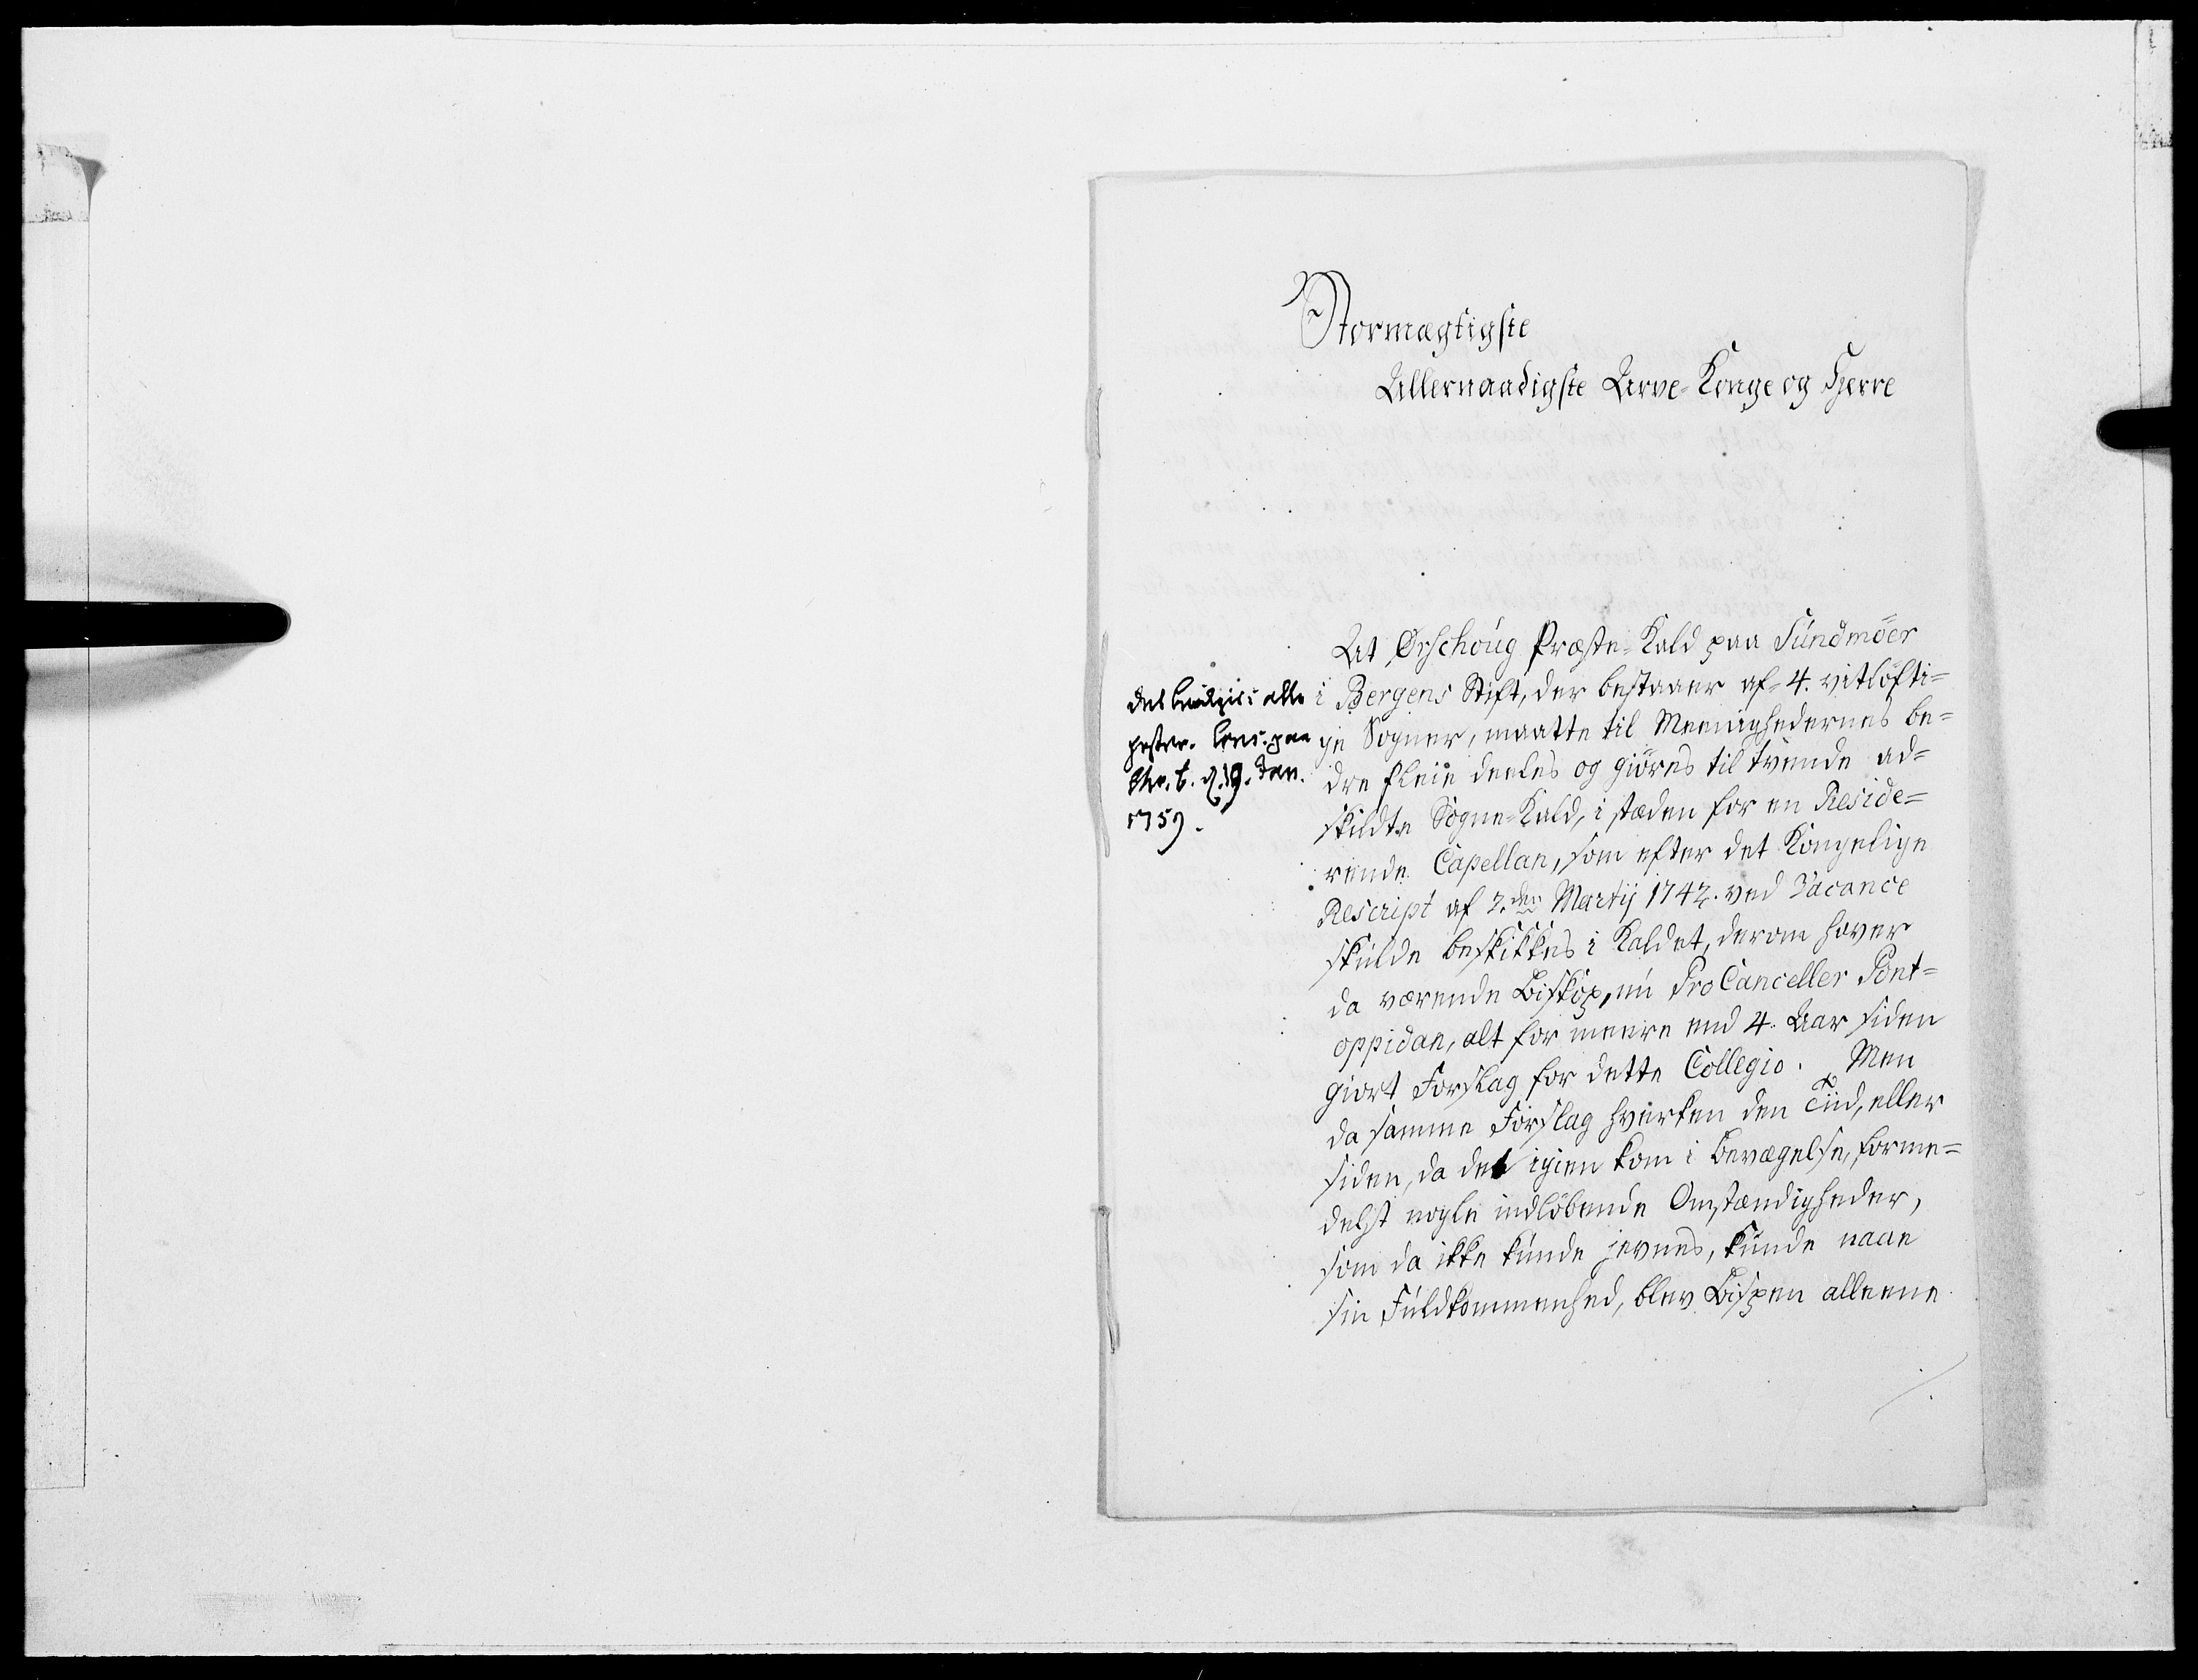 Stormægtigste
Allernaadigste Arve-Konge og Herre
At Ørschoug Præste-Kald paa Sundmöer
i Bergens Stift, der bestaaer af 4. vitlöfti=
ge Sogner, maatte til Meenighedernes be=
dre Pleie deeles og giöres til tvende ad=
skildte Sogne-Kald, i stæden for en Reside=
rende Capellan, som efter det Kongelige
Rescript af 2.den Martij 1742. ved Vacance
skulde beskikkes i Kaldet, derom haver
da værende Biskop, nu ProCanceller Pont=
oppidan, alt for meere end 4. Aar siden
giort Forslag for dette Collegio. Men
da samme Forslag hverken den Tiid, eller
siden, da det igien kom i Bevægelse, forme=
delst nogle indlöbende Omstændigheder,
som da ikke kunde jevnes, kunde naae
sin Fuldkommenhed, blev Bispen alleene
det bevilgis: alle
gester. Cons: paa
Chr.b. d. 19. Jan.
1759.